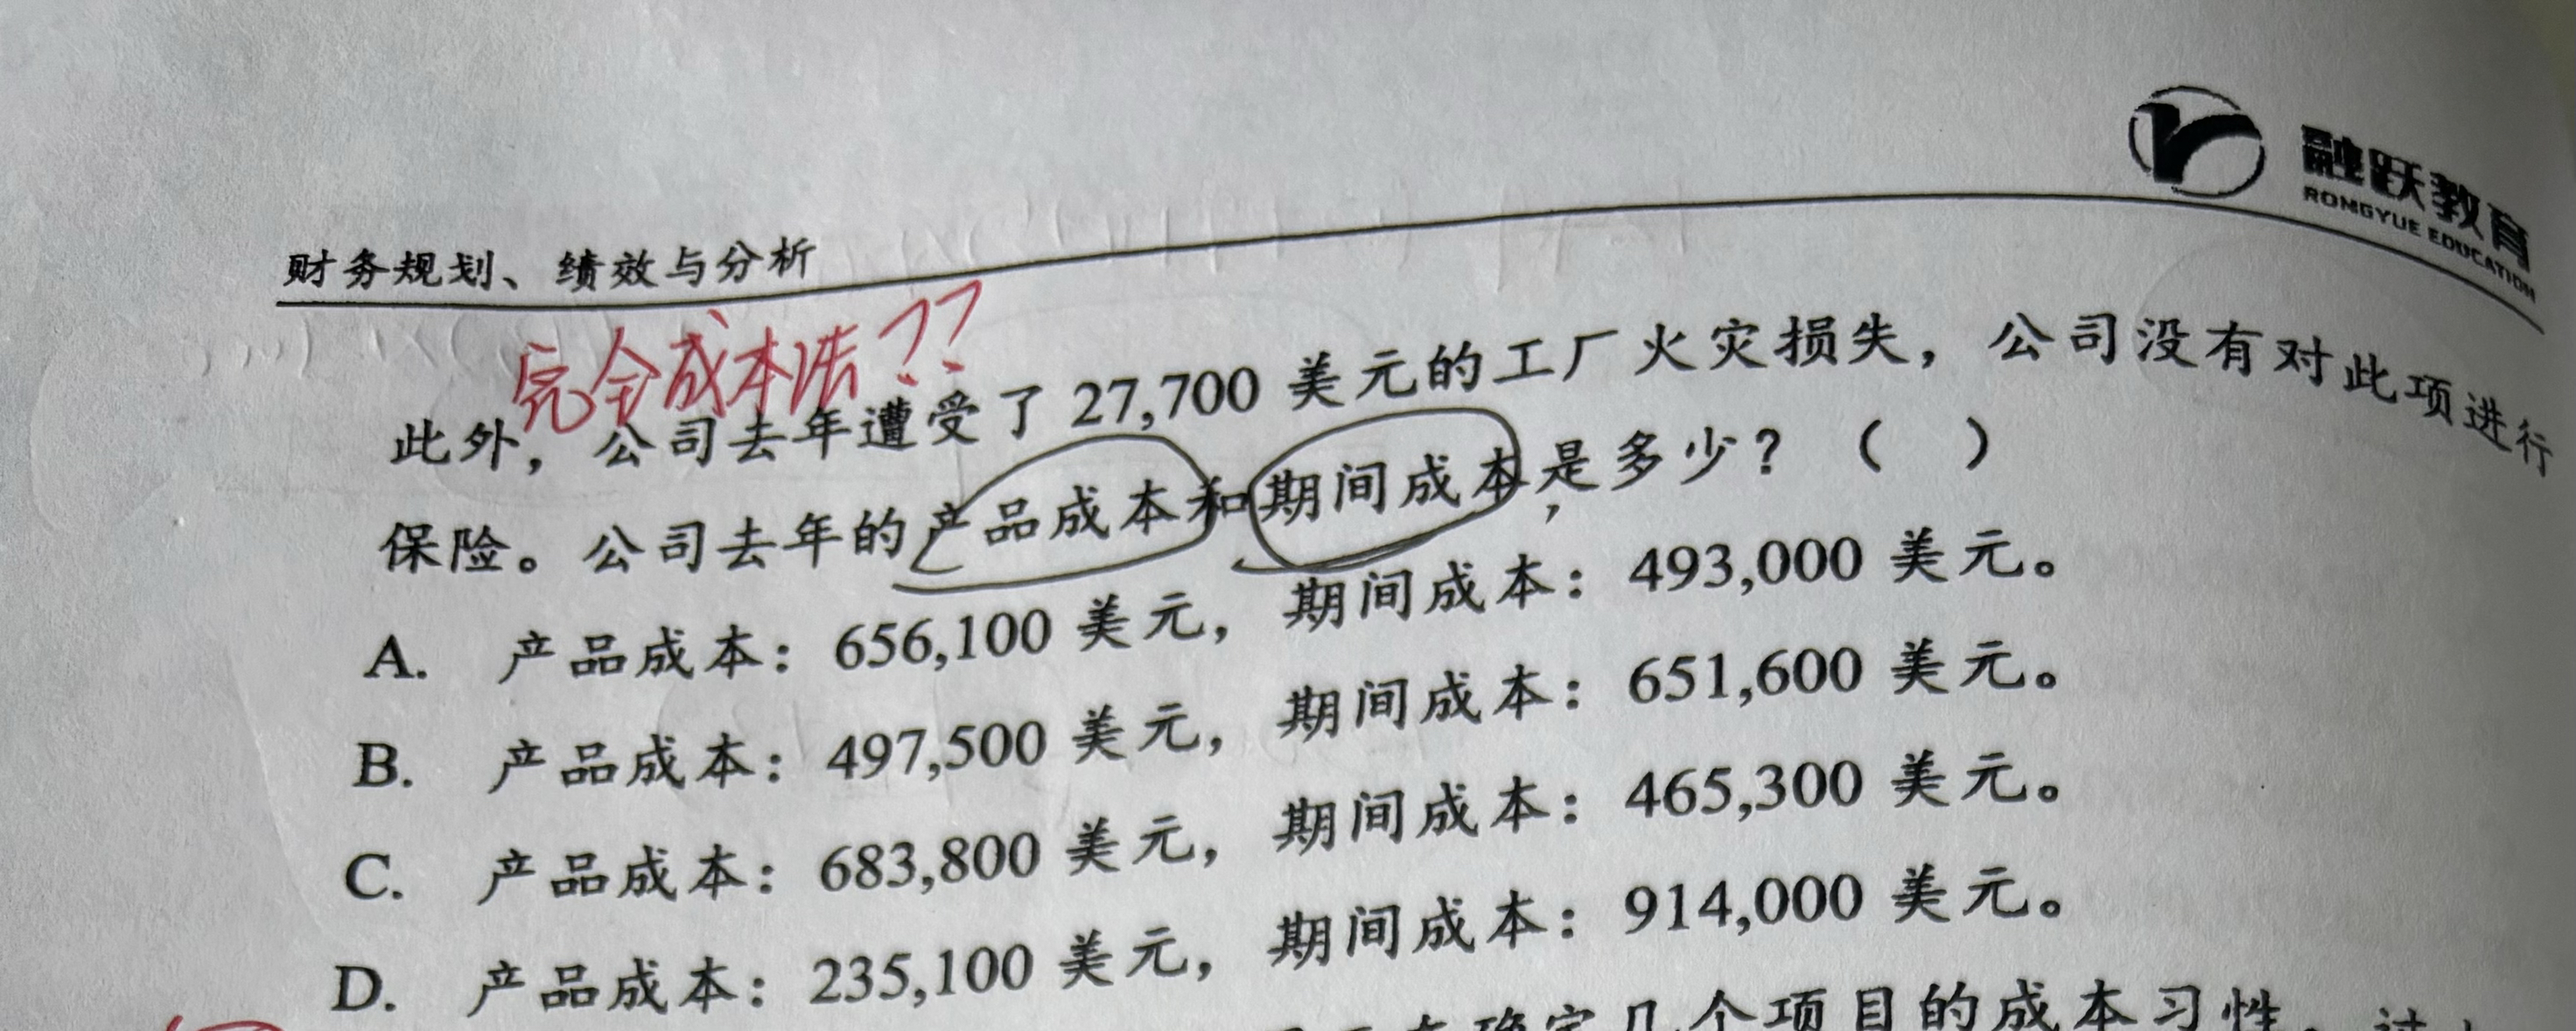 融跃教育
RONGYUE EDUCATION
财务规划、绩效与分析
完全成本法??
此外，公司去年遭受了 27,700 美元的工厂火灾损失，公司没有对此项进行
保险。公司去年的产品成本和期间成本是多少？（ ）
A. 产品成本：656,100 美元，期间成本：493,000 美元。
B. 产品成本：497,500 美元，期间成本：651,600 美元。
C. 产品成本：683,800 美元，期间成本：465,300 美元。
D. 产品成本：235,100 美元，期间成本：914,000 美元。
确定几个项目的成本习性。